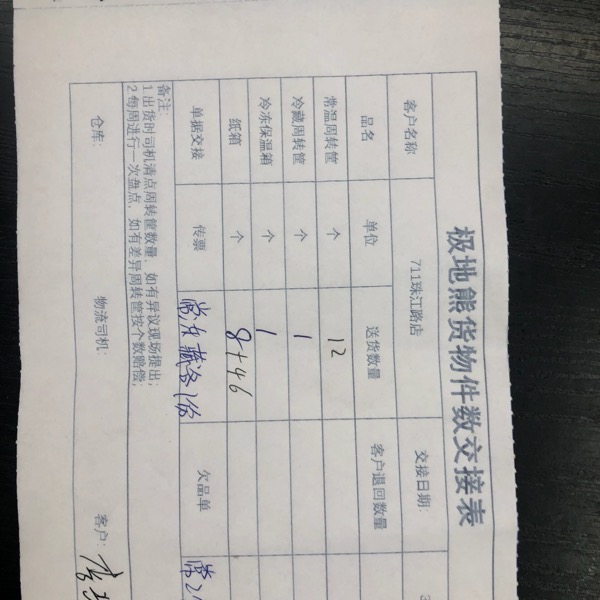 极地熊货物件数交接表
客户名称 711珠江路店 交接日期: 3
品名 单位 送货数量 客户退回数量
常温周转筐 个 12
冷藏周转筐 个 1
冷冻保温箱 个 1
纸箱 个 8+46
单据交接 传票 欠品单
备注:
1.出货时司机清点周转筐数量,如有异议现场提出;
2.每周进行一次盘点,如有差异周转筐按个数赔偿;
仓库: 物流司机: 客户: